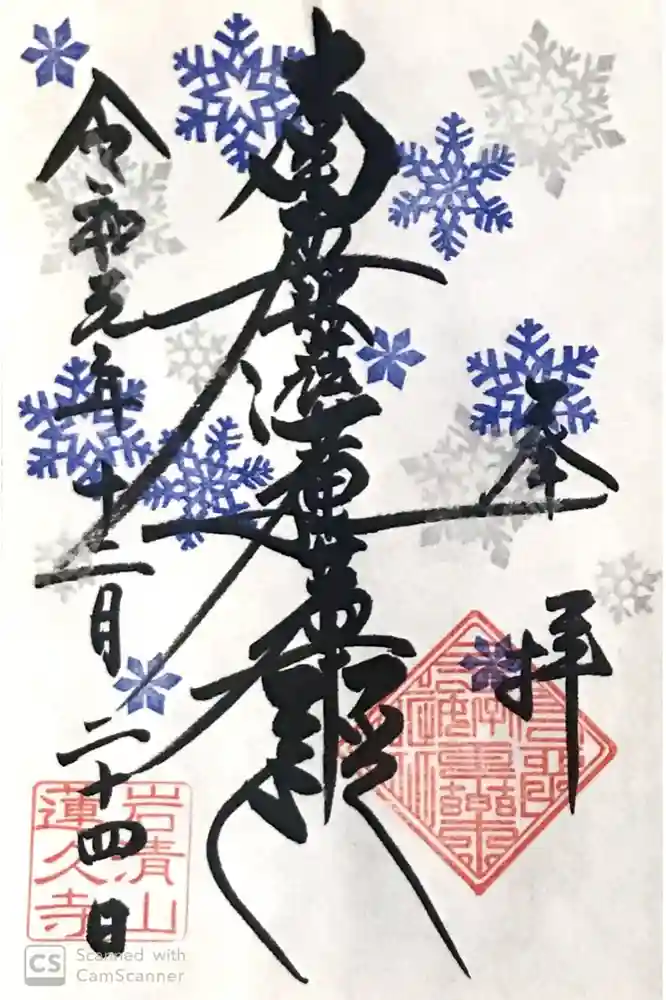 奉拝
南無妙法蓮華経
令和元年十二月二十四日
岩清山
蓮久寺
CS Scanned with
CamScanner